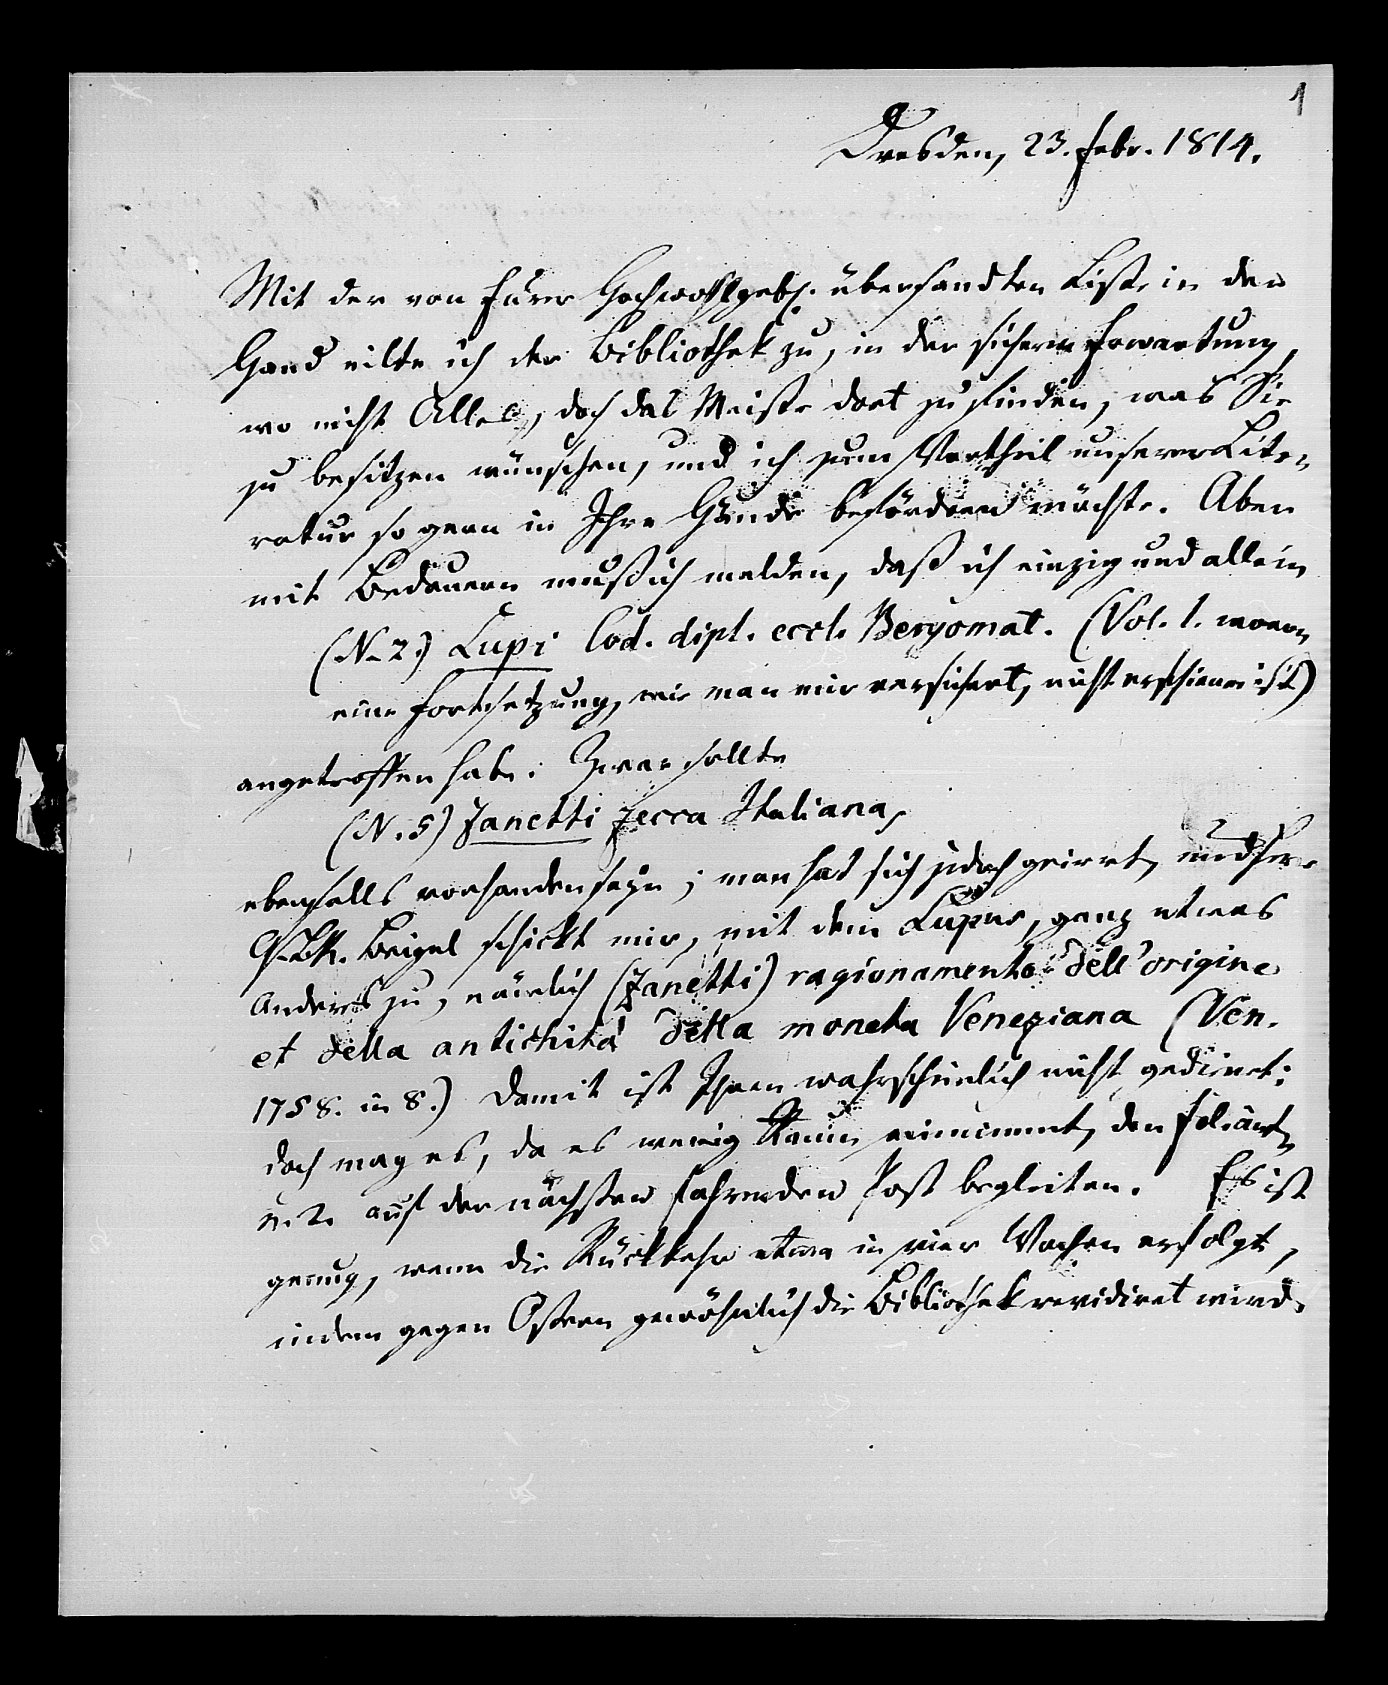 1
Dresden, 23. Febr. 1814.
Mit der von Eurer Hochwohlgeb. übersandten Liste in der
Hand eilte ich der Bibliothek zu, in der sichern Erwartung,
wo nicht Alles, doch das Meiste dort zu finden, was Sie
zu besitzen wünschen, und ich zum Vortheil unserer Lite-
ratur so gern in Ihre Hände befördern möchte. Aber
mit Bedauern muß ich melden, daß ich einzig und allein
(N. 2.) Lupi Cod. dipl. eccl. Bergomat. (Vol. 1. wovon
eine Fortsetzung, wie man mir versichert, nicht erschienen ist)
angetroffen habe. Zwar sollte
(N. 5) Zanetti zecca Italiana,
ebenfalls vorhanden seyn; man hat sich jedoch geirrt, und Hr.
Beigel schickt mir, mit dem Lupus, ganz etwas
Anderes zu, nämlich (Zanetti) ragionamento dell'origine
et della antichità della moneta Veneziana (Ven.
1758. in 8.) Damit ist Ihnen wahrscheinlich nicht gedienet;
doch mag es, da es wenig Raum einnimmt, den Foliant
n. 2. auf der nächsten fahrenden Post begleiten. Es ist
genug, wenn die Rückkehr etwa in vier Wochen erfolgt,
indem gegen Ostern gewöhnlich die Bibliothek revidiret wird.